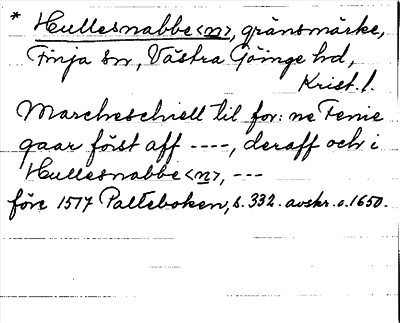 * Hullesnabbe<n>, gränsmärke,
Finja sn, Västra Göinge hd,
Krist. l.
Marcheschiell til for:ne Fenie
gaar först aff ----, deraff och i
Hullesnabbe<n>, ---
före 1517 Palteboken, s. 332. avskr. o. 1650.